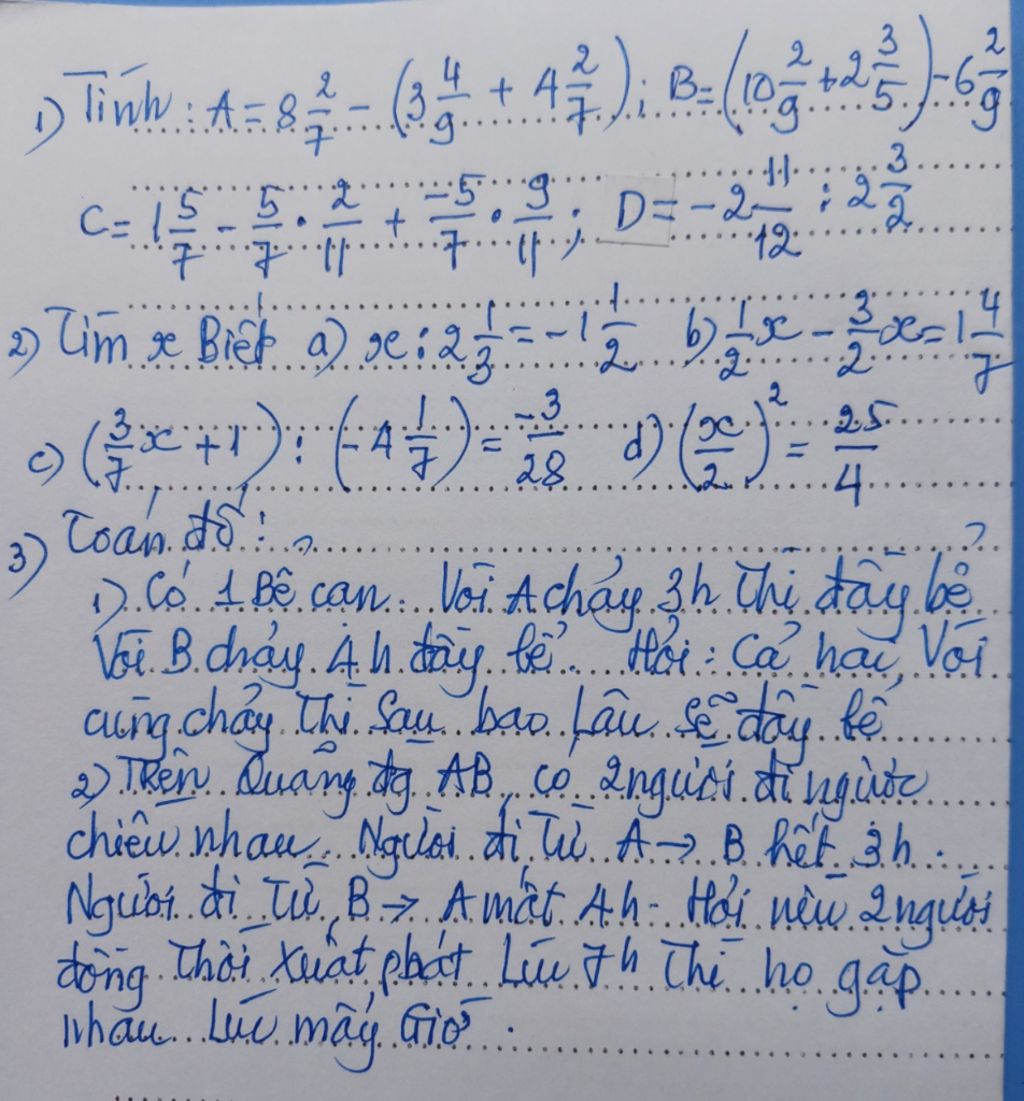 1) Tính: A = 8 2/7 - (3 4/9 + 4 2/7); B = (10 2/9 + 2 3/5) - 6 2/9
C = 1 5/7 - 5/7 . 2/11 + -5/7 . 9/11; D = -2 11/12 : 2 3/2
2) Tìm x Biết a) x : 2 1/3 = -1 1/2 b) 1/2 x - 3/2 x = 1 4/7
c) (3/7 x + 1) : (-4 1/7) = -3/28 d) (x/2)² = 25/4
3) Toán đố:
1) Có 1 Bể cạn. Vòi A chảy 3h thì đầy bể
Vòi B chảy 4h đầy bể. Hỏi: Cả hai Vòi
cùng chảy thì sau bao lâu sẽ đầy bể
2) Trên Quãng đg AB, có 2 người đi ngược
chiều nhau. Người đi Từ A → B hết 3h.
Người đi Từ B → A mất 4h. Hỏi nếu 2 người
đồng thời xuất phát Lúc 7h thì họ gặp
nhau lúc mấy Giờ.